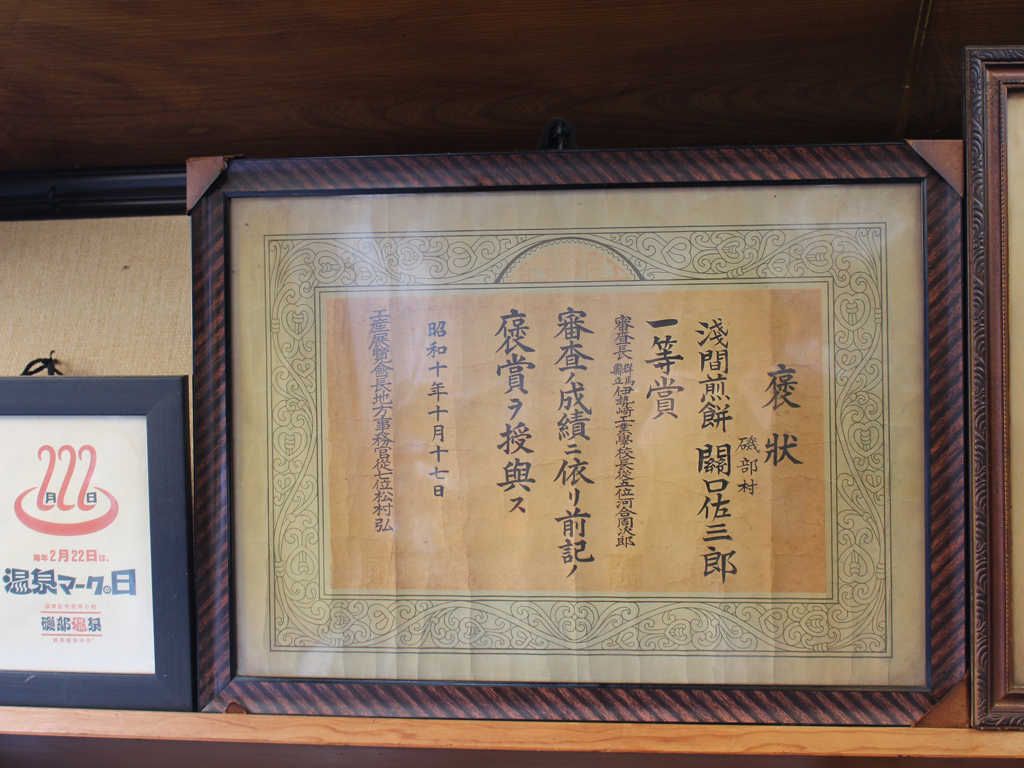 褒狀
磯部村
淺間煎餅 關口佐三郎
一等賞
審査長 群馬縣立伊勢崎工業學校長從五位河合圅次郎
審査ノ成績ニ依リ前記ノ
褒賞ヲ授與ス
昭和十年十月十七日
工産展覽會長地方事務官從七位松村弘
222
月 日
毎年2月22日は、
温泉マークの日
磯部温泉